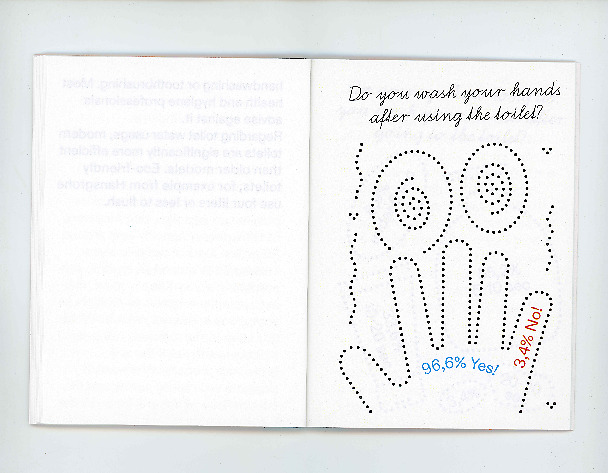 Do you wash your hands
after using the toilet?
96,6% Yes!
3,4% No!
handwashing or toothbrushing. Most
health and hygiene professionals
advise against it.
Regarding toilet water usage, modern
toilets are significantly more efficient
than older models. Eco-friendly
toilets, for example from Hansgrohe
use four liters or less to flush.